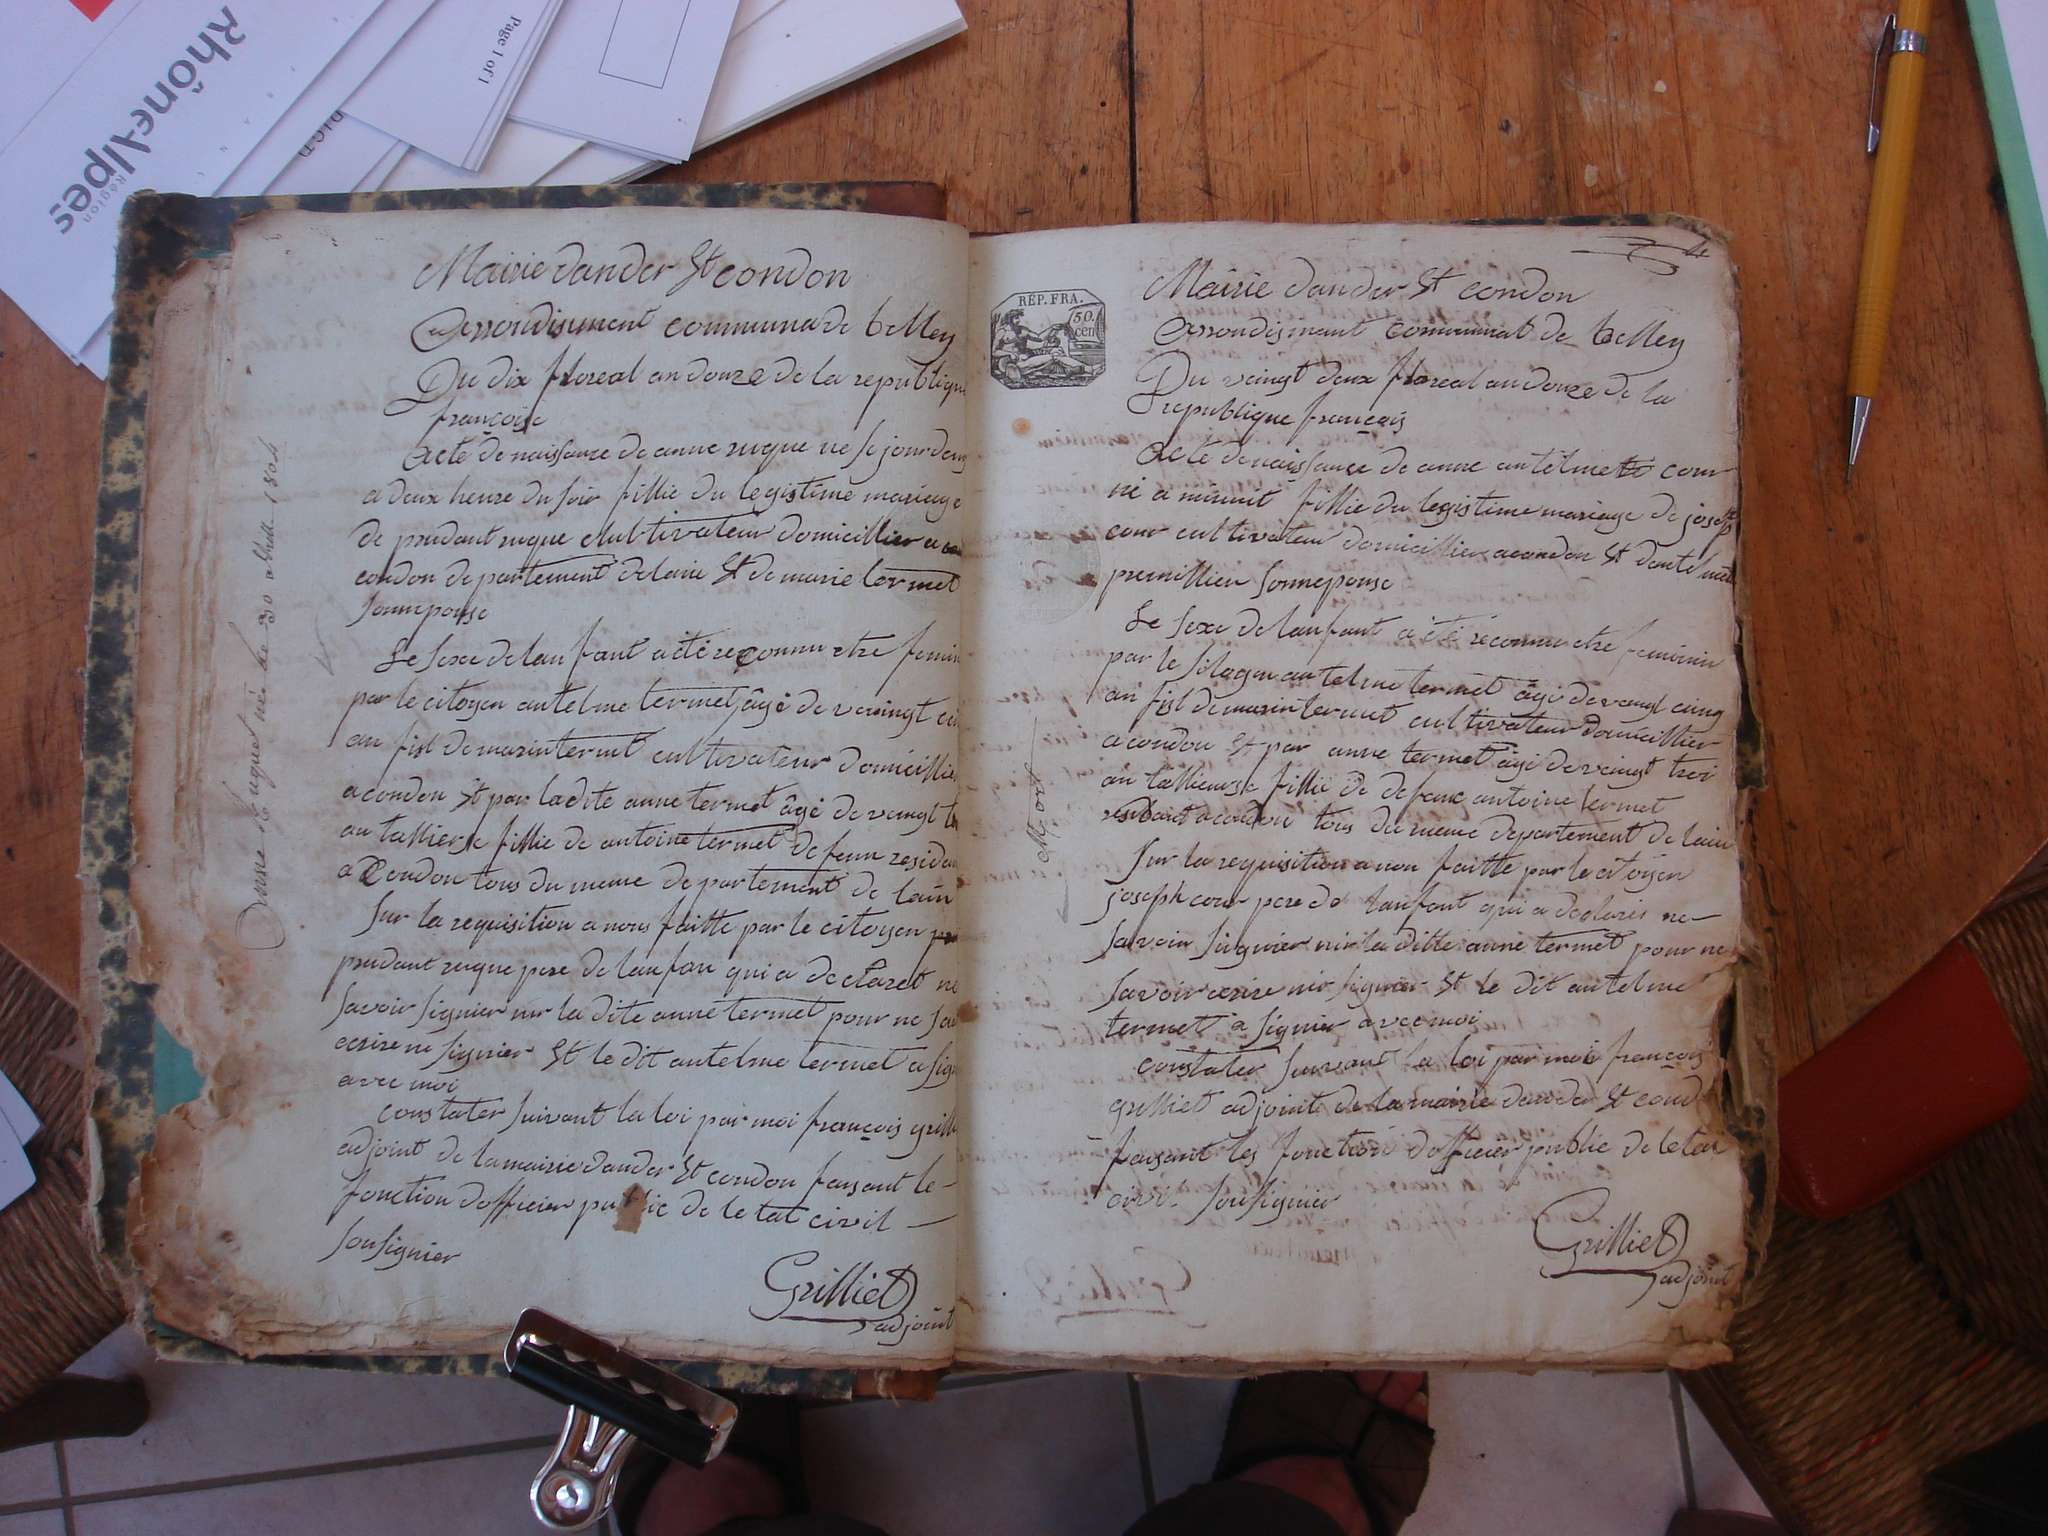 RhôneAlpes
Région
Page 1 of 1
Mairie dander St condon
arrondisiment communa de belley
Du dix floreal an douze de la republique
françoise
Acte de naissance de anne ruque ne se jour
a deux heure du soir fillie du legistime mariage
de prudant ruque cultivateur domicillier a
condon departement delain Et de marie termet
sonneponse
Le sexe de lanfant a été reconnu etre femin
par le citoyen antelme termet âgé de veingt
an fisl de marin termet cultivateur domicillie
a condon Et par ladite anne termet âgé de veingt
an tallierse fillie de antoine termet defenu residen
a Condon tous du meme departement de lain
Sur la requisition a nous faitte par le citoyen
prudant ruque pere de lanfan qui a declaret ne
savoir signier nir la dite anne termet pour ne
ecrire ne signier Et le dit antelme termet a sign
avec moi
constater suivant la loi par moi françois grill
adjoint de la mairie dander Et condon faisant le
fonction dofficier public de letat civil
sousignier
Grilliet
adjoint
Anne Ruquet née le 30 abril 1804
4
RÉP. FRA.
50.
cen
Mairie dander St condon
arrondismant communal de belley
Du veingt deux floreal an douze de la
republique français
Acte de naissance de anne antelmette cour
né a minuit fillie du legistime mariage de joseph
cour cultivateur domicillier a condon Et dantelmete
premillieu sonneponse
Le sexe de lanfant a été reconnu etre feminin
par le sitagen antelme termet âgé de veingt cinq
an fisl de marin termet cultivateur domicillier
a condon Et par anne termet âgé de veingt troi
an tallieuse fillie de defunc antoine termet
residant a condon tous du meme departement de lain
Sur la requisition a nou faitte par le citoyen
joseph cour pere de lanfant qui a declarés ne
savoir signier nir la ditte anne termet pour ne
savoir ecrire nir signier Et le dit antelme
termet a signier avec moi
constater suivant la loi par moi françois
grilliet adjoint de la mairie dander Et cond
faisant les fonction dofficier public de letat
civil sousignier
Grilliet
adjoint
Mort